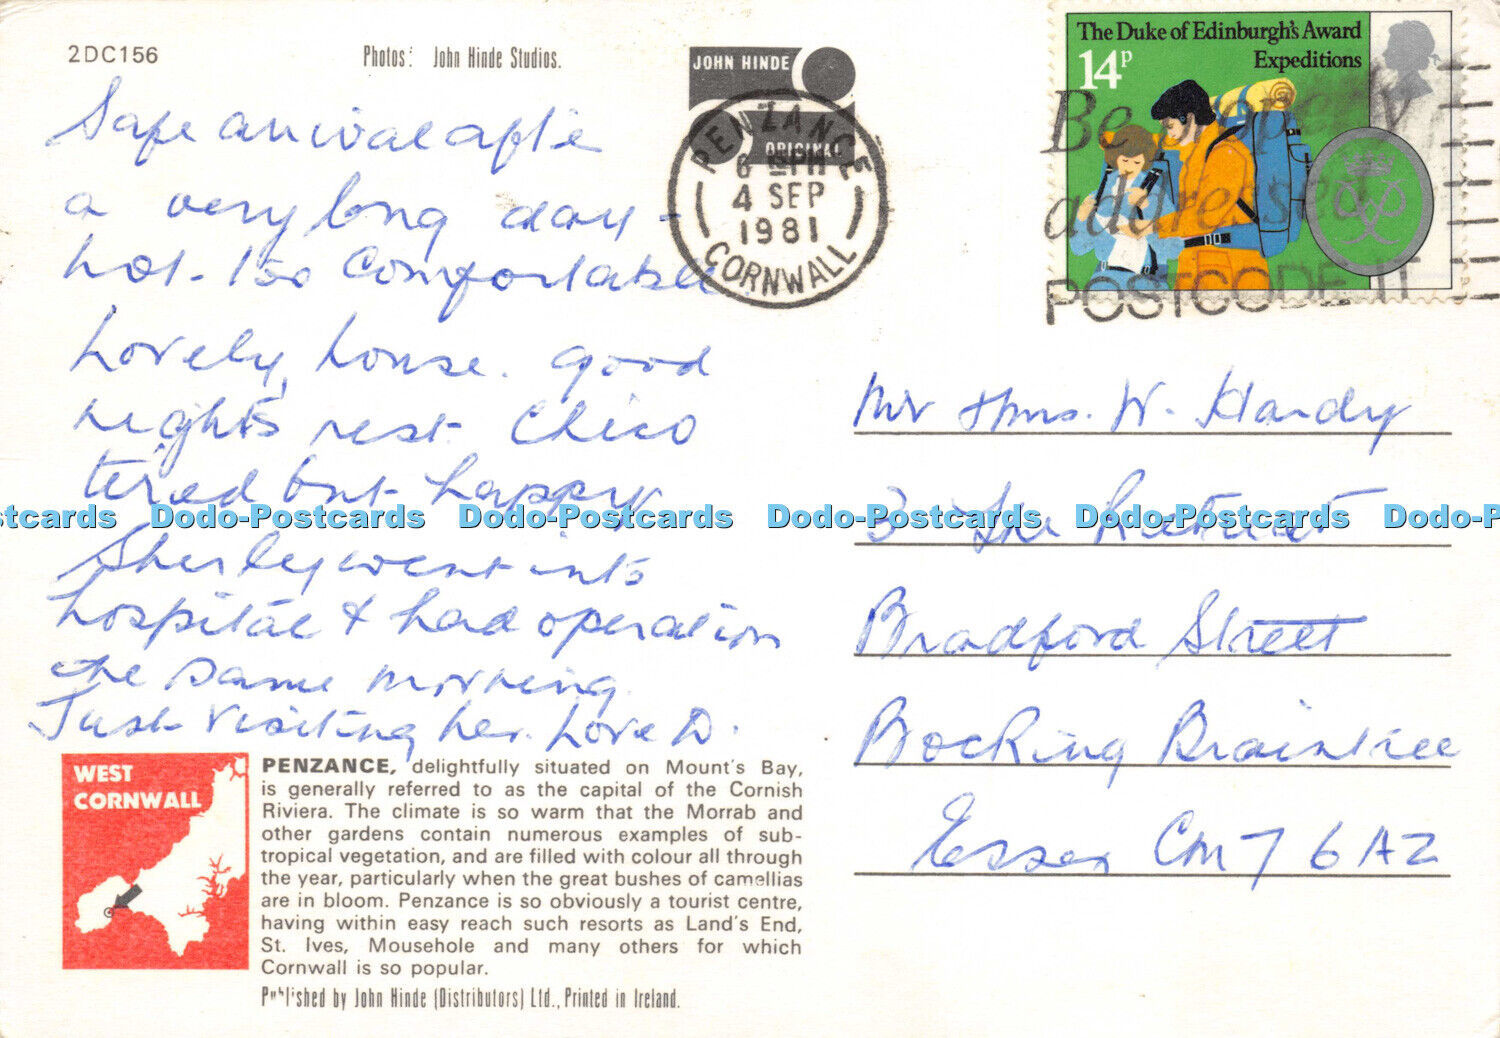 2DC156
Photos: John Hinde Studios.
JOHN HINDE
ORIGINAL
PENZANCE
6 PM
4 SEP
1981
CORNWALL
The Duke of Edinburgh's Award
Expeditions
14P
Be properly
addressed
POSTCODE IT
Safe arrival after
a very long day -
hot - too comfortable
Lovely house. good
nights rest. Chico
tired but happy
Shirley went into
hospital & had operation
the same morning.
Just visiting her. Love D.
Mr & Mrs. W. Hardy
3 The Retreat
Bradford Street
Bocking Braintree
Essex CM7 6AZ
Dodo-Postcards Dodo-Postcards Dodo-Postcards Dodo-Postcards Dodo-Postcards
WEST
CORNWALL
PENZANCE, delightfully situated on Mount's Bay,
is generally referred to as the capital of the Cornish
Riviera. The climate is so warm that the Morrab and
other gardens contain numerous examples of sub-
tropical vegetation, and are filled with colour all through
the year, particularly when the great bushes of camellias
are in bloom. Penzance is so obviously a tourist centre,
having within easy reach such resorts as Land's End,
St. Ives, Mousehole and many others for which
Cornwall is so popular.
Published by John Hinde (Distributors) Ltd., Printed in Ireland.